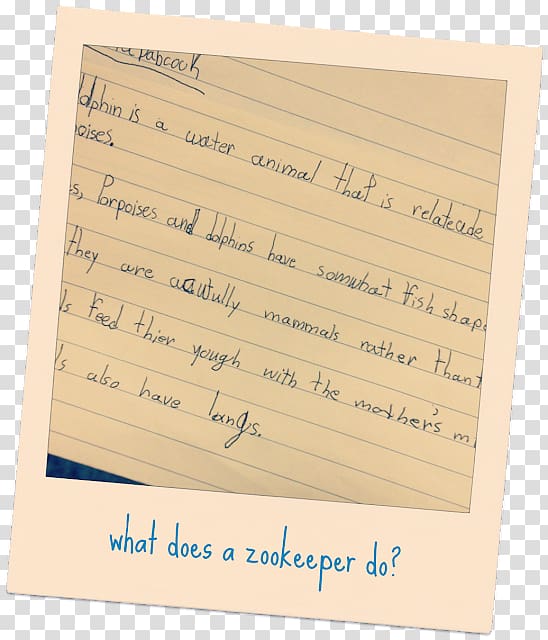 Babcock
olphin is a water animal that is relatecide
oises.
s, Porpoises and dolphins have somwhat fish shap
they are acawfully mammals rather than
ls feed thier yough with the mother's m
ls also have langs.
what does a zookeeper do?